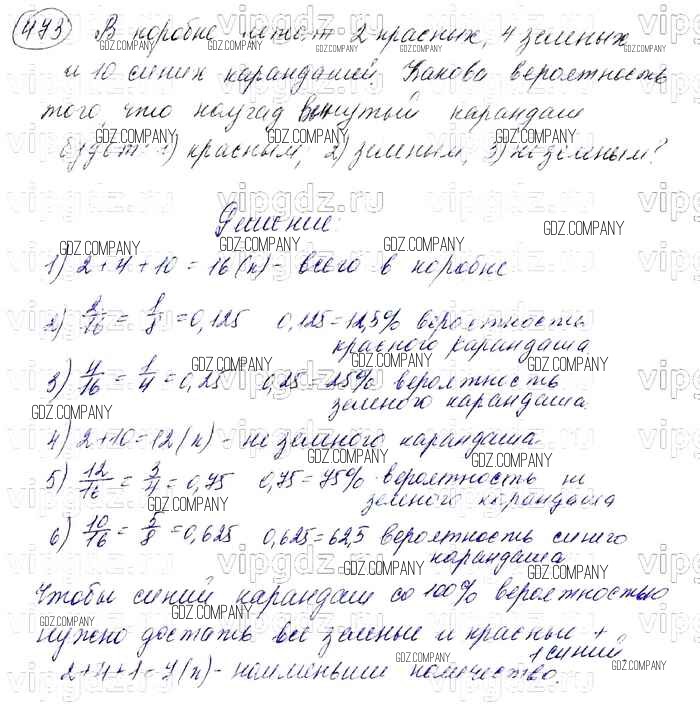 473 В коробке лежат 2 красных, 4 зеленых
и 10 синих карандашей. Какова вероятность
того, что наугад вынутый карандаш
будет: 1) красным, 2) зеленым, 3) не зеленым?
Решение:
1) 2+4+10=16(к)- всего в коробке
2) 2/16 = 1/8 = 0,125 0,125=12,5% вероятность
красного карандаша
3) 4/16 = 1/4 = 0,25 0,25=25% вероятность
зеленого карандаша.
4) 2+10=12(к)- не зеленого карандаша.
5) 12/16 = 3/4 = 0,75 0,75=75% вероятность не
зеленого карандаша
6) 10/16 = 5/8 = 0,625 0,625=62,5 вероятность синего
карандаша
Чтобы синий карандаш со 100% вероятностью
нужно достать все зеленые и красные +
1 синий
2+4+1=7(к)- наименьшее количество.
GDZ.COMPANY
vipgdz.ru